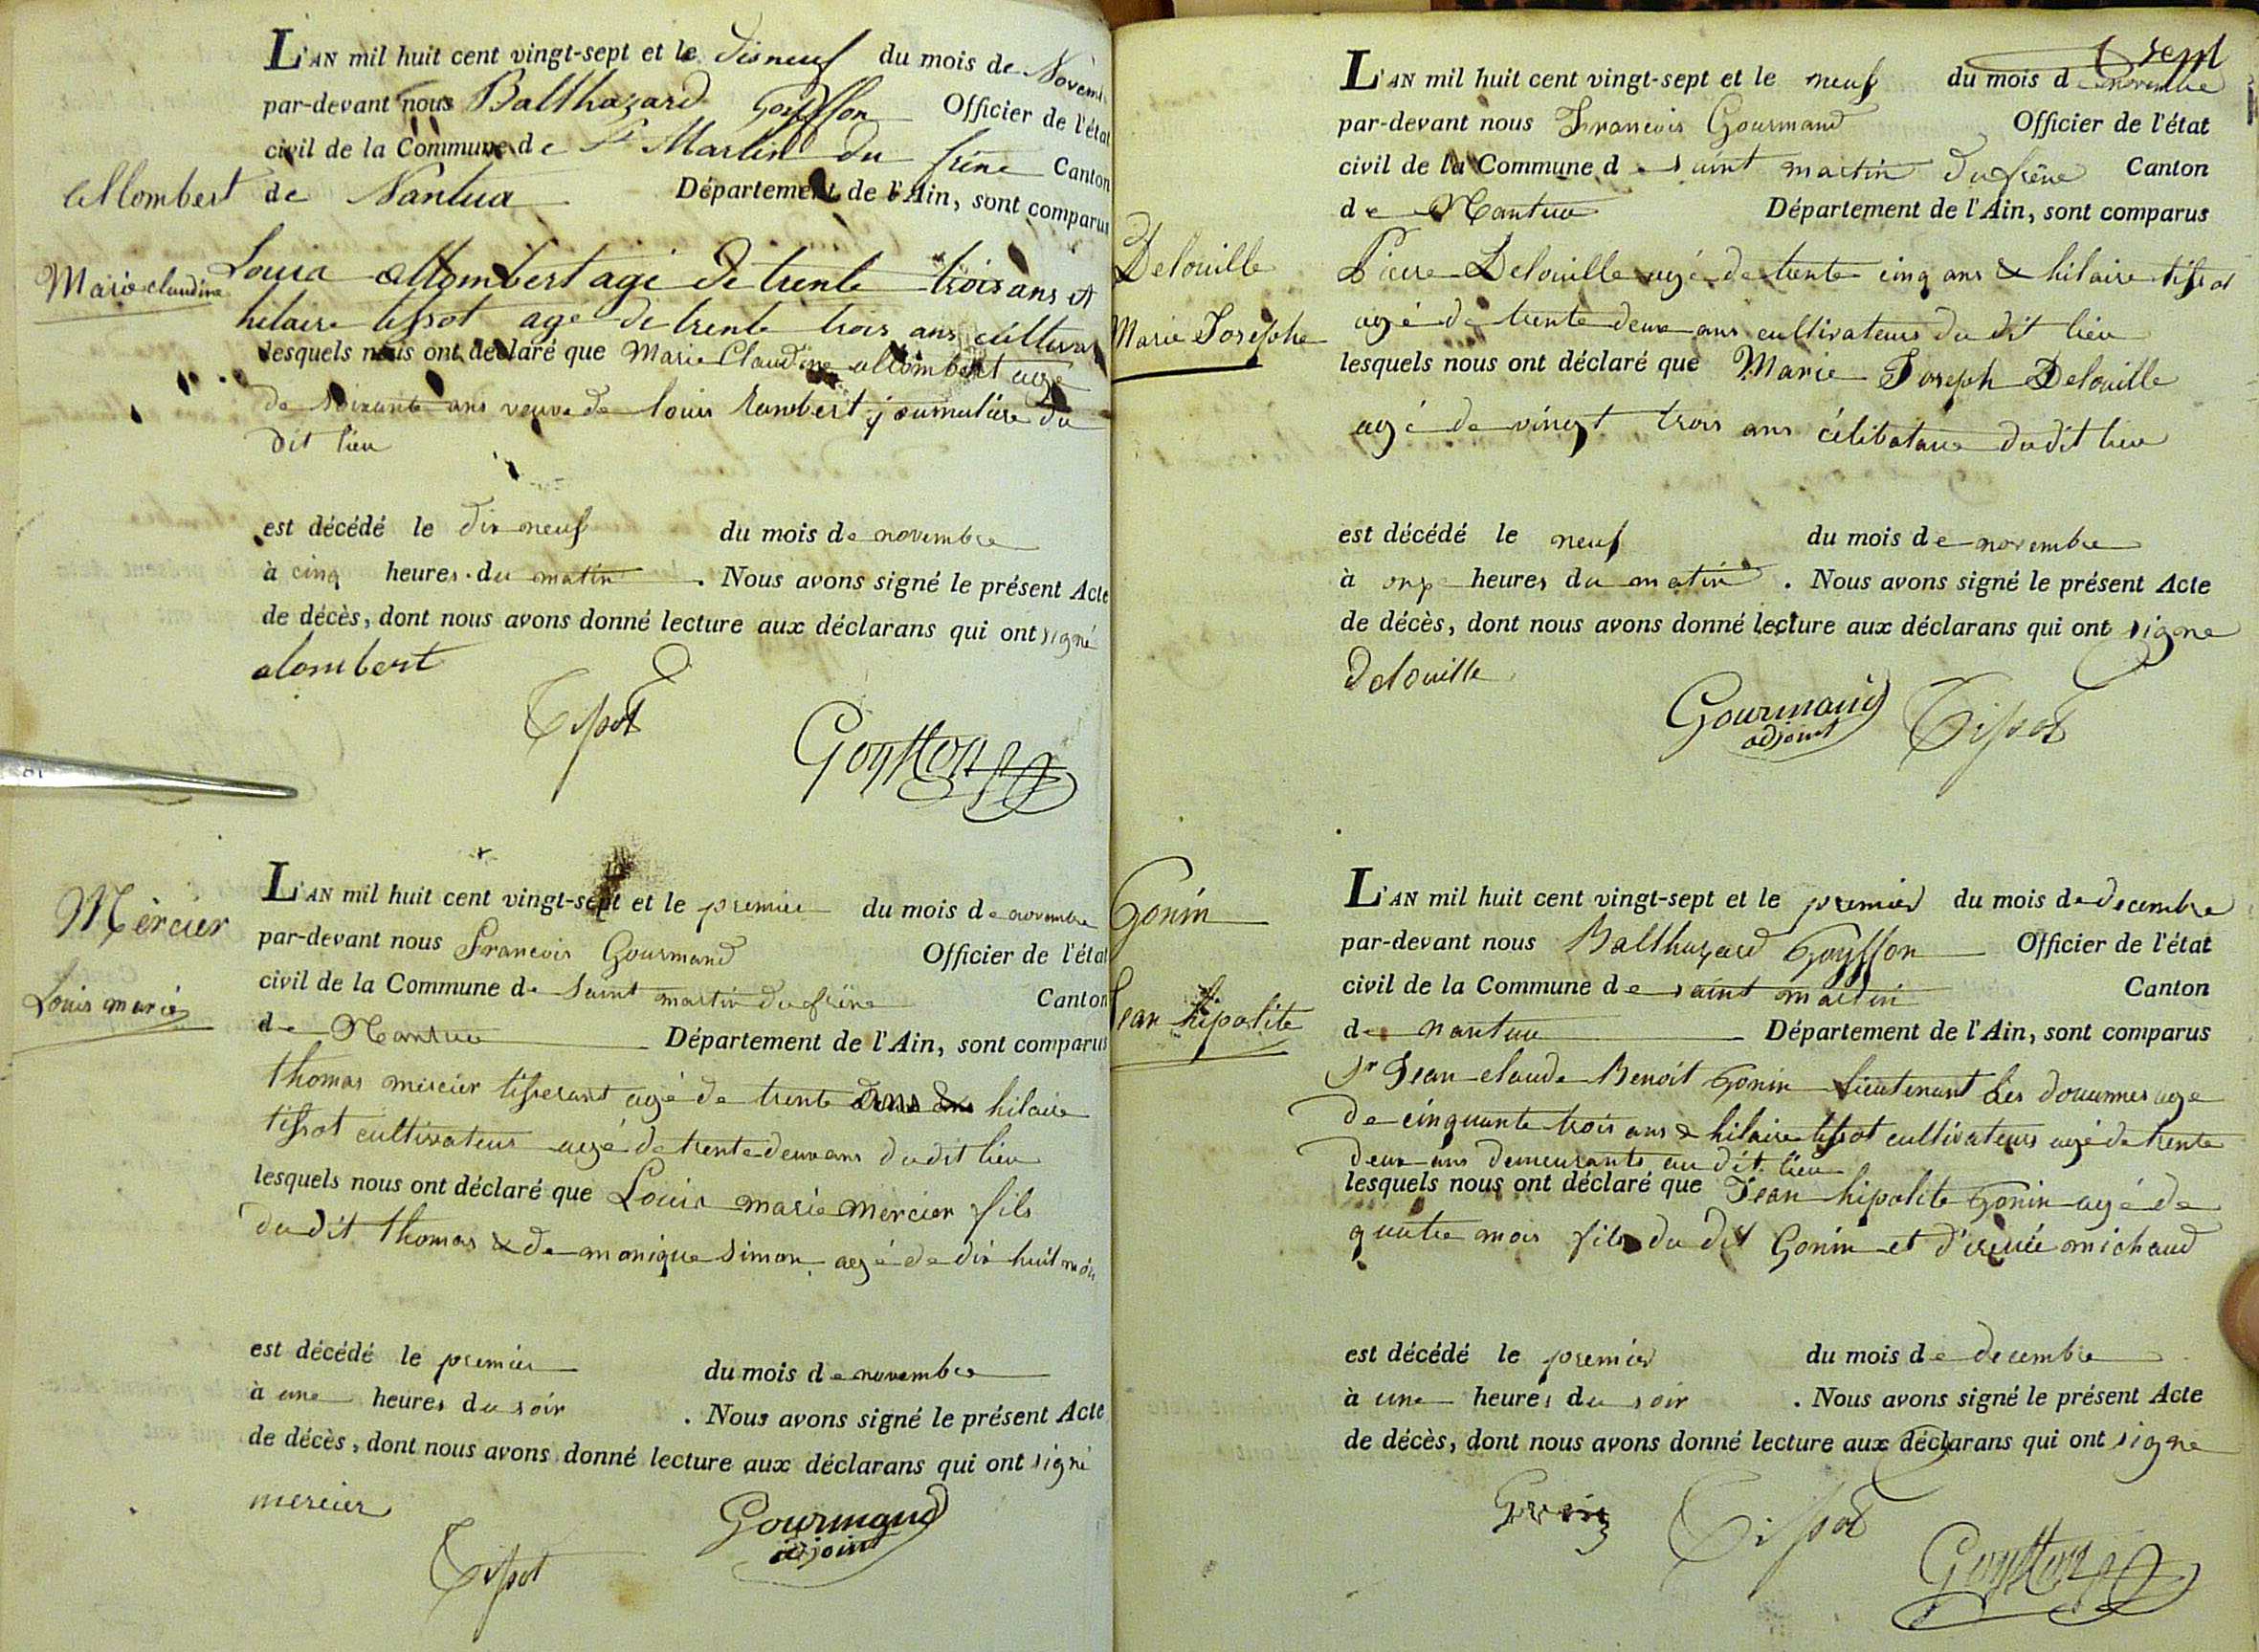 L'AN mil huit cent vingt-sept et le disneuf du mois de Novem
par-devant nous Balthazard Goyffon Officier de l'état
civil de la Commune de St Martin du frêne Canton
de Nantua Département de l'Ain, sont comparus
allombert
Marie claudine
Louis allombert agé de trente trois ans et
hilaire tissot agé de trente trois ans cultivat
lesquels nous ont déclaré que Marie Claudine allombert agé
de soixante ans veuve de louis journalière du
dit lieu
est décédé le dix neuf du mois de novembre
à cinq heures du matin . Nous avons signé le présent Acte
de décès, dont nous avons donné lecture aux déclarans qui ont signé
alombert
Tissot
Goyffon
L'AN mil huit cent vingt-sept et le premier du mois de novembre
par-devant nous Francois Gourmand Officier de l'état
civil de la Commune de Saint martin du frêne Canton
de Nantua Département de l'Ain, sont comparus
Mercier
Louis marie
thomas mercier tisserant agé de trente hilaire
tissot cultivateur agé de trente deux ans du dit lieu
lesquels nous ont déclaré que Louis marie mercier fils
du dit thomas & de monique simon agé de dix huit mois
est décédé le premier du mois de novembre
à une heures du soir . Nous avons signé le présent Acte
de décès, dont nous avons donné lecture aux déclarans qui ont signé
mercier
Gourmand
adjoint
Tissot
sept
L'AN mil huit cent vingt-sept et le neuf du mois de novembre
par-devant nous Francois Gourmand Officier de l'état
civil de la Commune de saint martin du frêne Canton
de Nantua Département de l'Ain, sont comparus
Delouille
Marie Josephe
Pierre Delouille agé de trente cinq ans & hilaire tissot
agé de trente deux ans cultivateurs du dit lieu
lesquels nous ont déclaré que Marie Joseph Delouille
agé de vingt trois ans célibataire du dit lieu
est décédé le neuf du mois de novembre
à onze heures du matin . Nous avons signé le présent Acte
de décès, dont nous avons donné lecture aux déclarans qui ont signé
delouille
Gourmand
adjoint
Tissot
L'AN mil huit cent vingt-sept et le premier du mois de decembre
par-devant nous Balthazard Goyffon Officier de l'état
civil de la Commune de saint martin Canton
de nantua Département de l'Ain, sont comparus
Gonin
Jean hipolite
Sr Jean claude Benoit Gonin Lieutenant des douannes agé
de cinquante trois ans & hilaire tissot cultivateurs agé de trente
deux ans demeurants au dit lieu
lesquels nous ont déclaré que Jean hipolite Gonin agé de
quatre mois fils du dit Gonin et d' michaud
est décédé le premier du mois de decembre
à une heures du soir . Nous avons signé le présent Acte
de décès, dont nous avons donné lecture aux déclarans qui ont signé
Gonin
Tissot
Goyffon